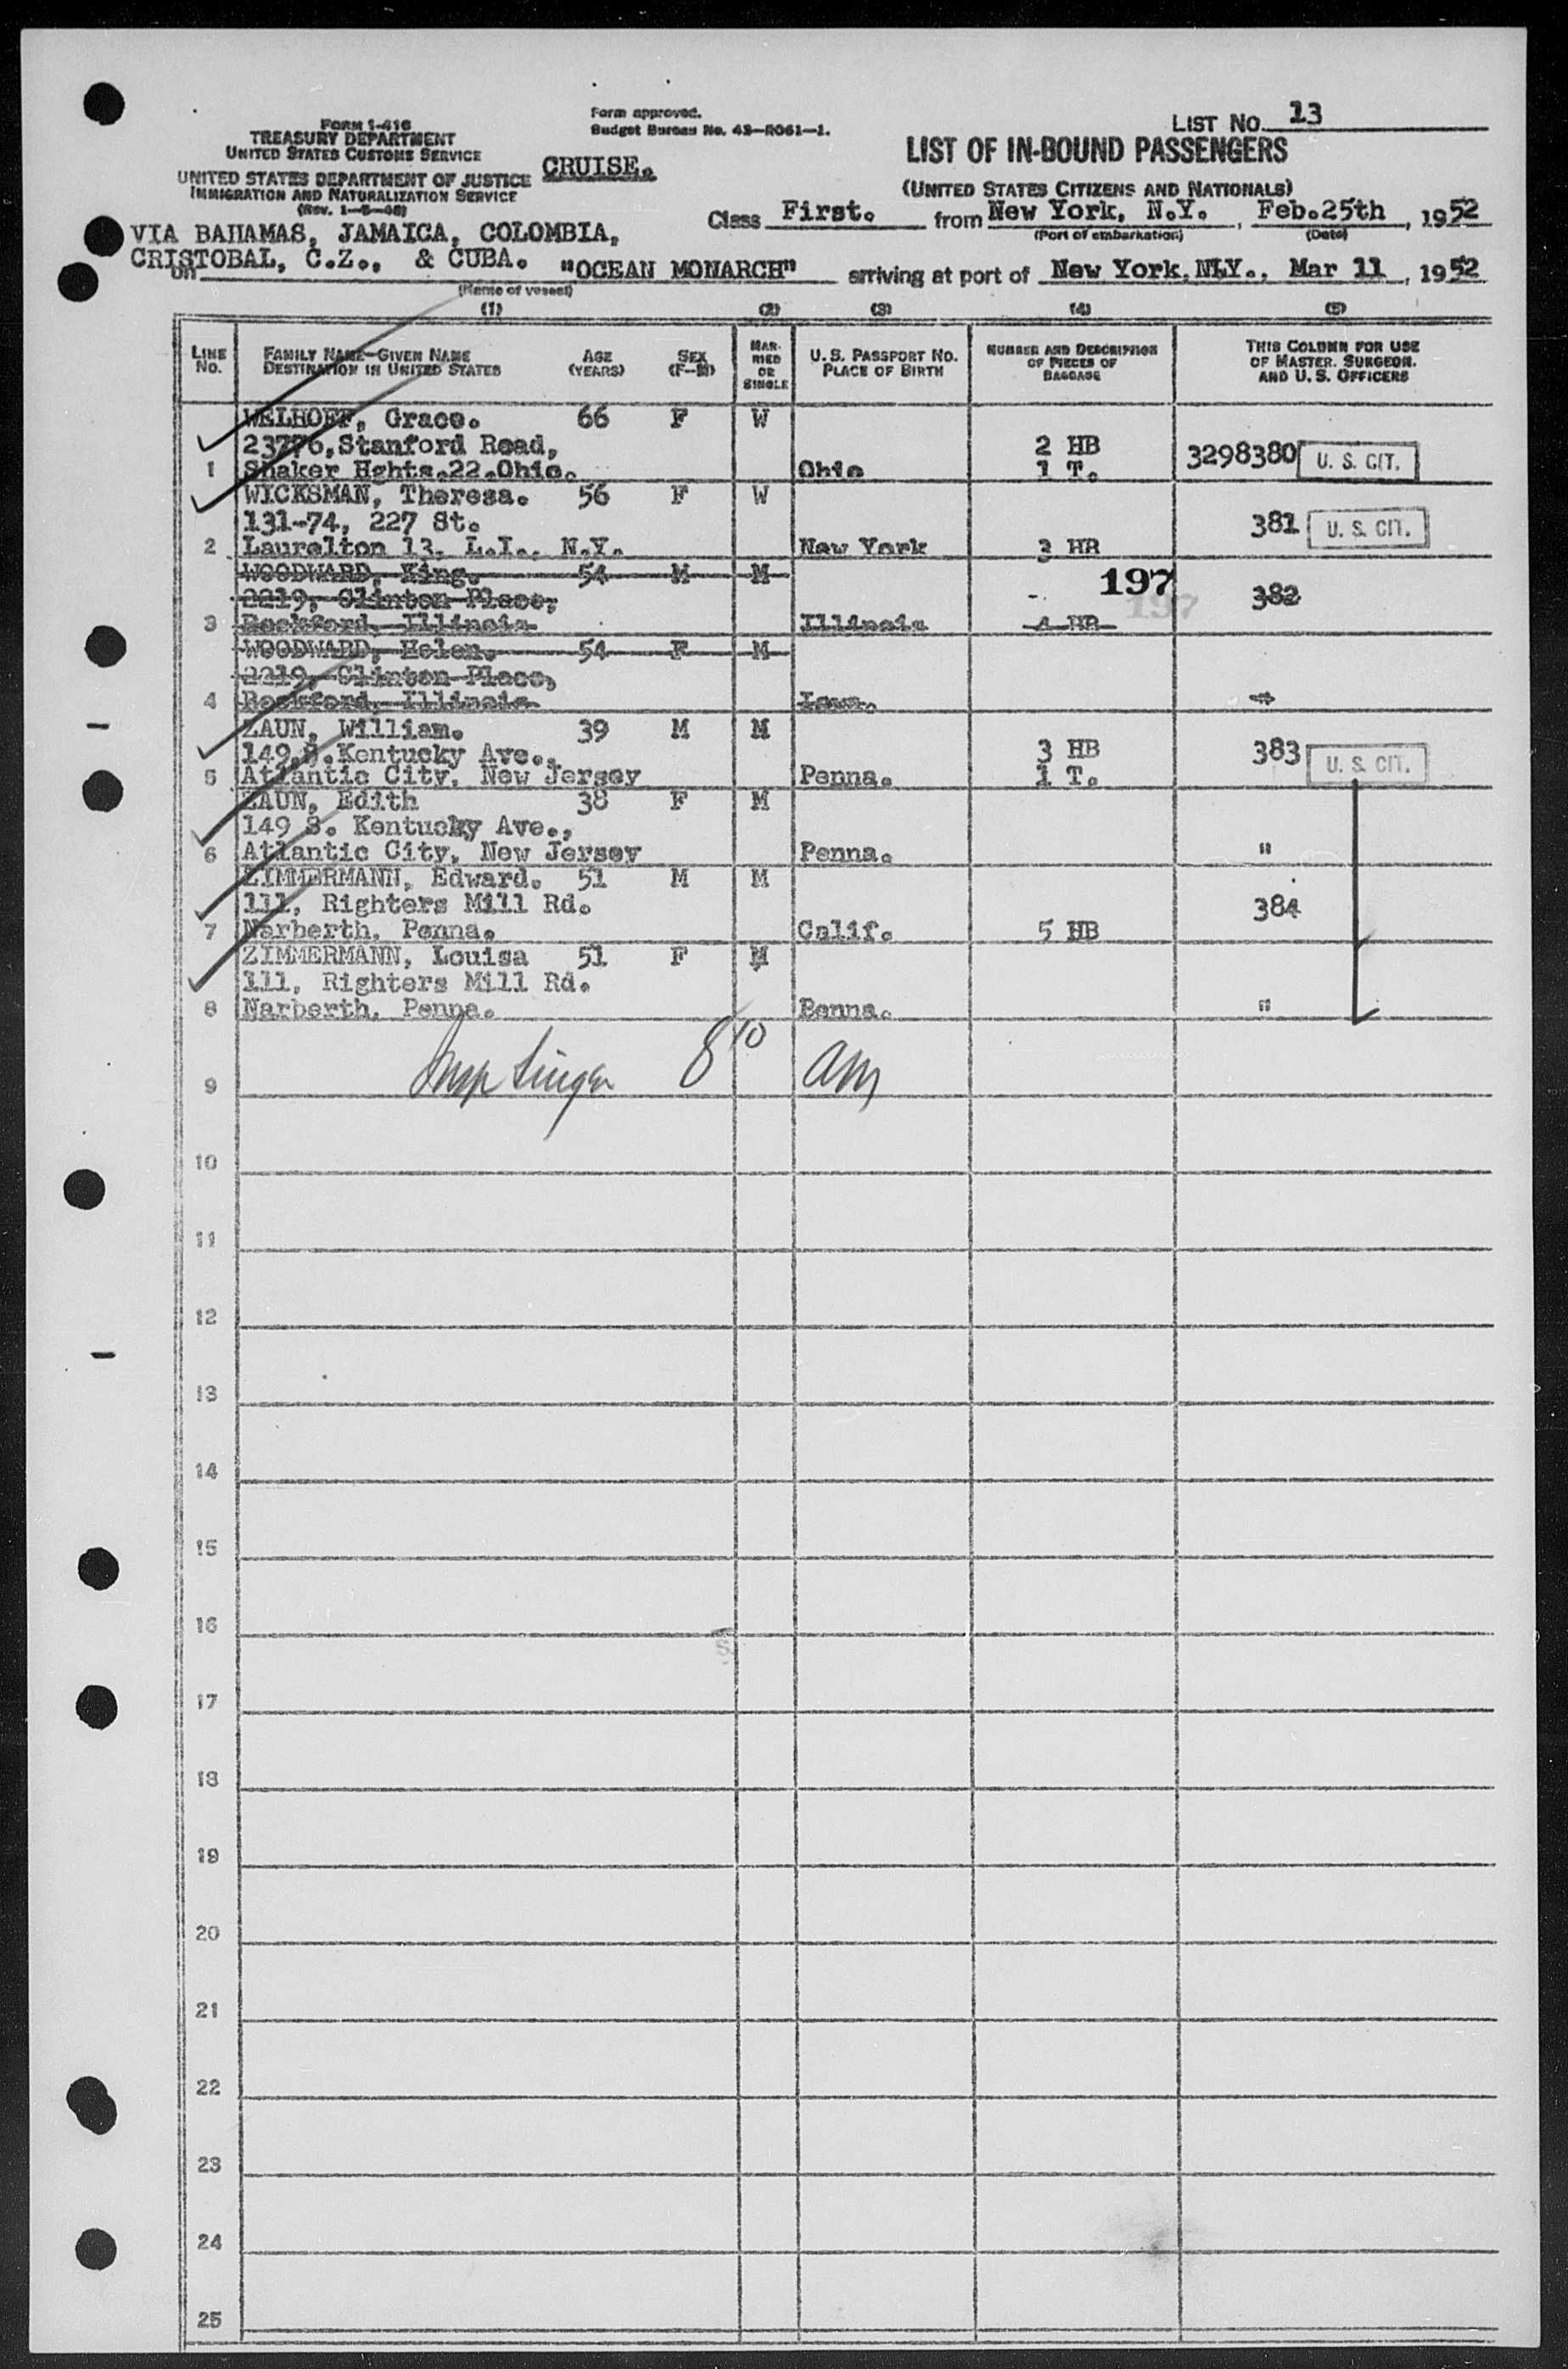 FORM I-416
TREASURY DEPARTMENT
UNITED STATES CUSTOMS SERVICE
UNITED STATES DEPARTMENT OF JUSTICE
IMMIGRATION AND NATURALIZATION SERVICE
Form approved.
Budget Bureau No. 43-R061-1.
CRUISE.
LIST NO. 13
LIST OF IN-BOUND PASSENGERS
(UNITED STATES CITIZENS AND NATIONALS)
Class First. from New York, N.Y., Feb.25th, 1952
(Port of embarkation) (Date)
VIA BAHAMAS, JAMAICA, COLOMBIA,
CRISTOBAL, C.Z., & CUBA.
on "OCEAN MONARCH" arriving at port of New York, NLY., Mar 11, 1952
(Name of vessel)
(1) (2) (3) (4) (5)
LINE No. FAMILY NAME-GIVEN NAME DESTINATION IN UNITED STATES AGE (YEARS) SEX (F-M) MARRIED OR SINGLE U. S. PASSPORT NO. PLACE OF BIRTH NUMBER AND DESCRIPTION OF PIECES OF BAGGAGE THIS COLUMN FOR USE OF MASTER, SURGEON, AND U. S. OFFICERS
WELHOFF, Grace. 66 F W
23776, Stanford Road, 2 HB 3298380 U. S. CIT.
1 Shaker Hghts.22.Ohio. Ohio 1 T.
WICKSMAN, Theresa. 56 F W
131-74, 227 St. 381 U. S. CIT.
2 Laurelton 13, L.I., N.Y. New York 3 HB
WOODWARD, King. 54 M M 197
2219, Clinton Place, 382
3 Rockford, Illinois Illinois 4 HB
WOODWARD, Helen. 54 F M
2219, Clinton Place,
4 Rockford, Illinois Iowa.
ZAUN, William. 39 M M
149,S.Kentucky Ave., 3 HB 383 U. S. CIT.
5 Atlantic City, New Jersey Penna. 1 T.
ZAUN, Edith 38 F M
149 S. Kentucky Ave.,
6 Atlantic City, New Jersey Penna. "
ZIMMERMANN, Edward. 51 M M
111, Righters Mill Rd. 384
7 Narberth, Penna. Calif. 5 HB
ZIMMERMANN, Louisa 51 F M
111, Righters Mill Rd.
8 Narberth, Penna. Penna. "
9 Insp Singer 8 10 am
10
11
12
13
14
15
16
17
18
19
20
21
22
23
24
25